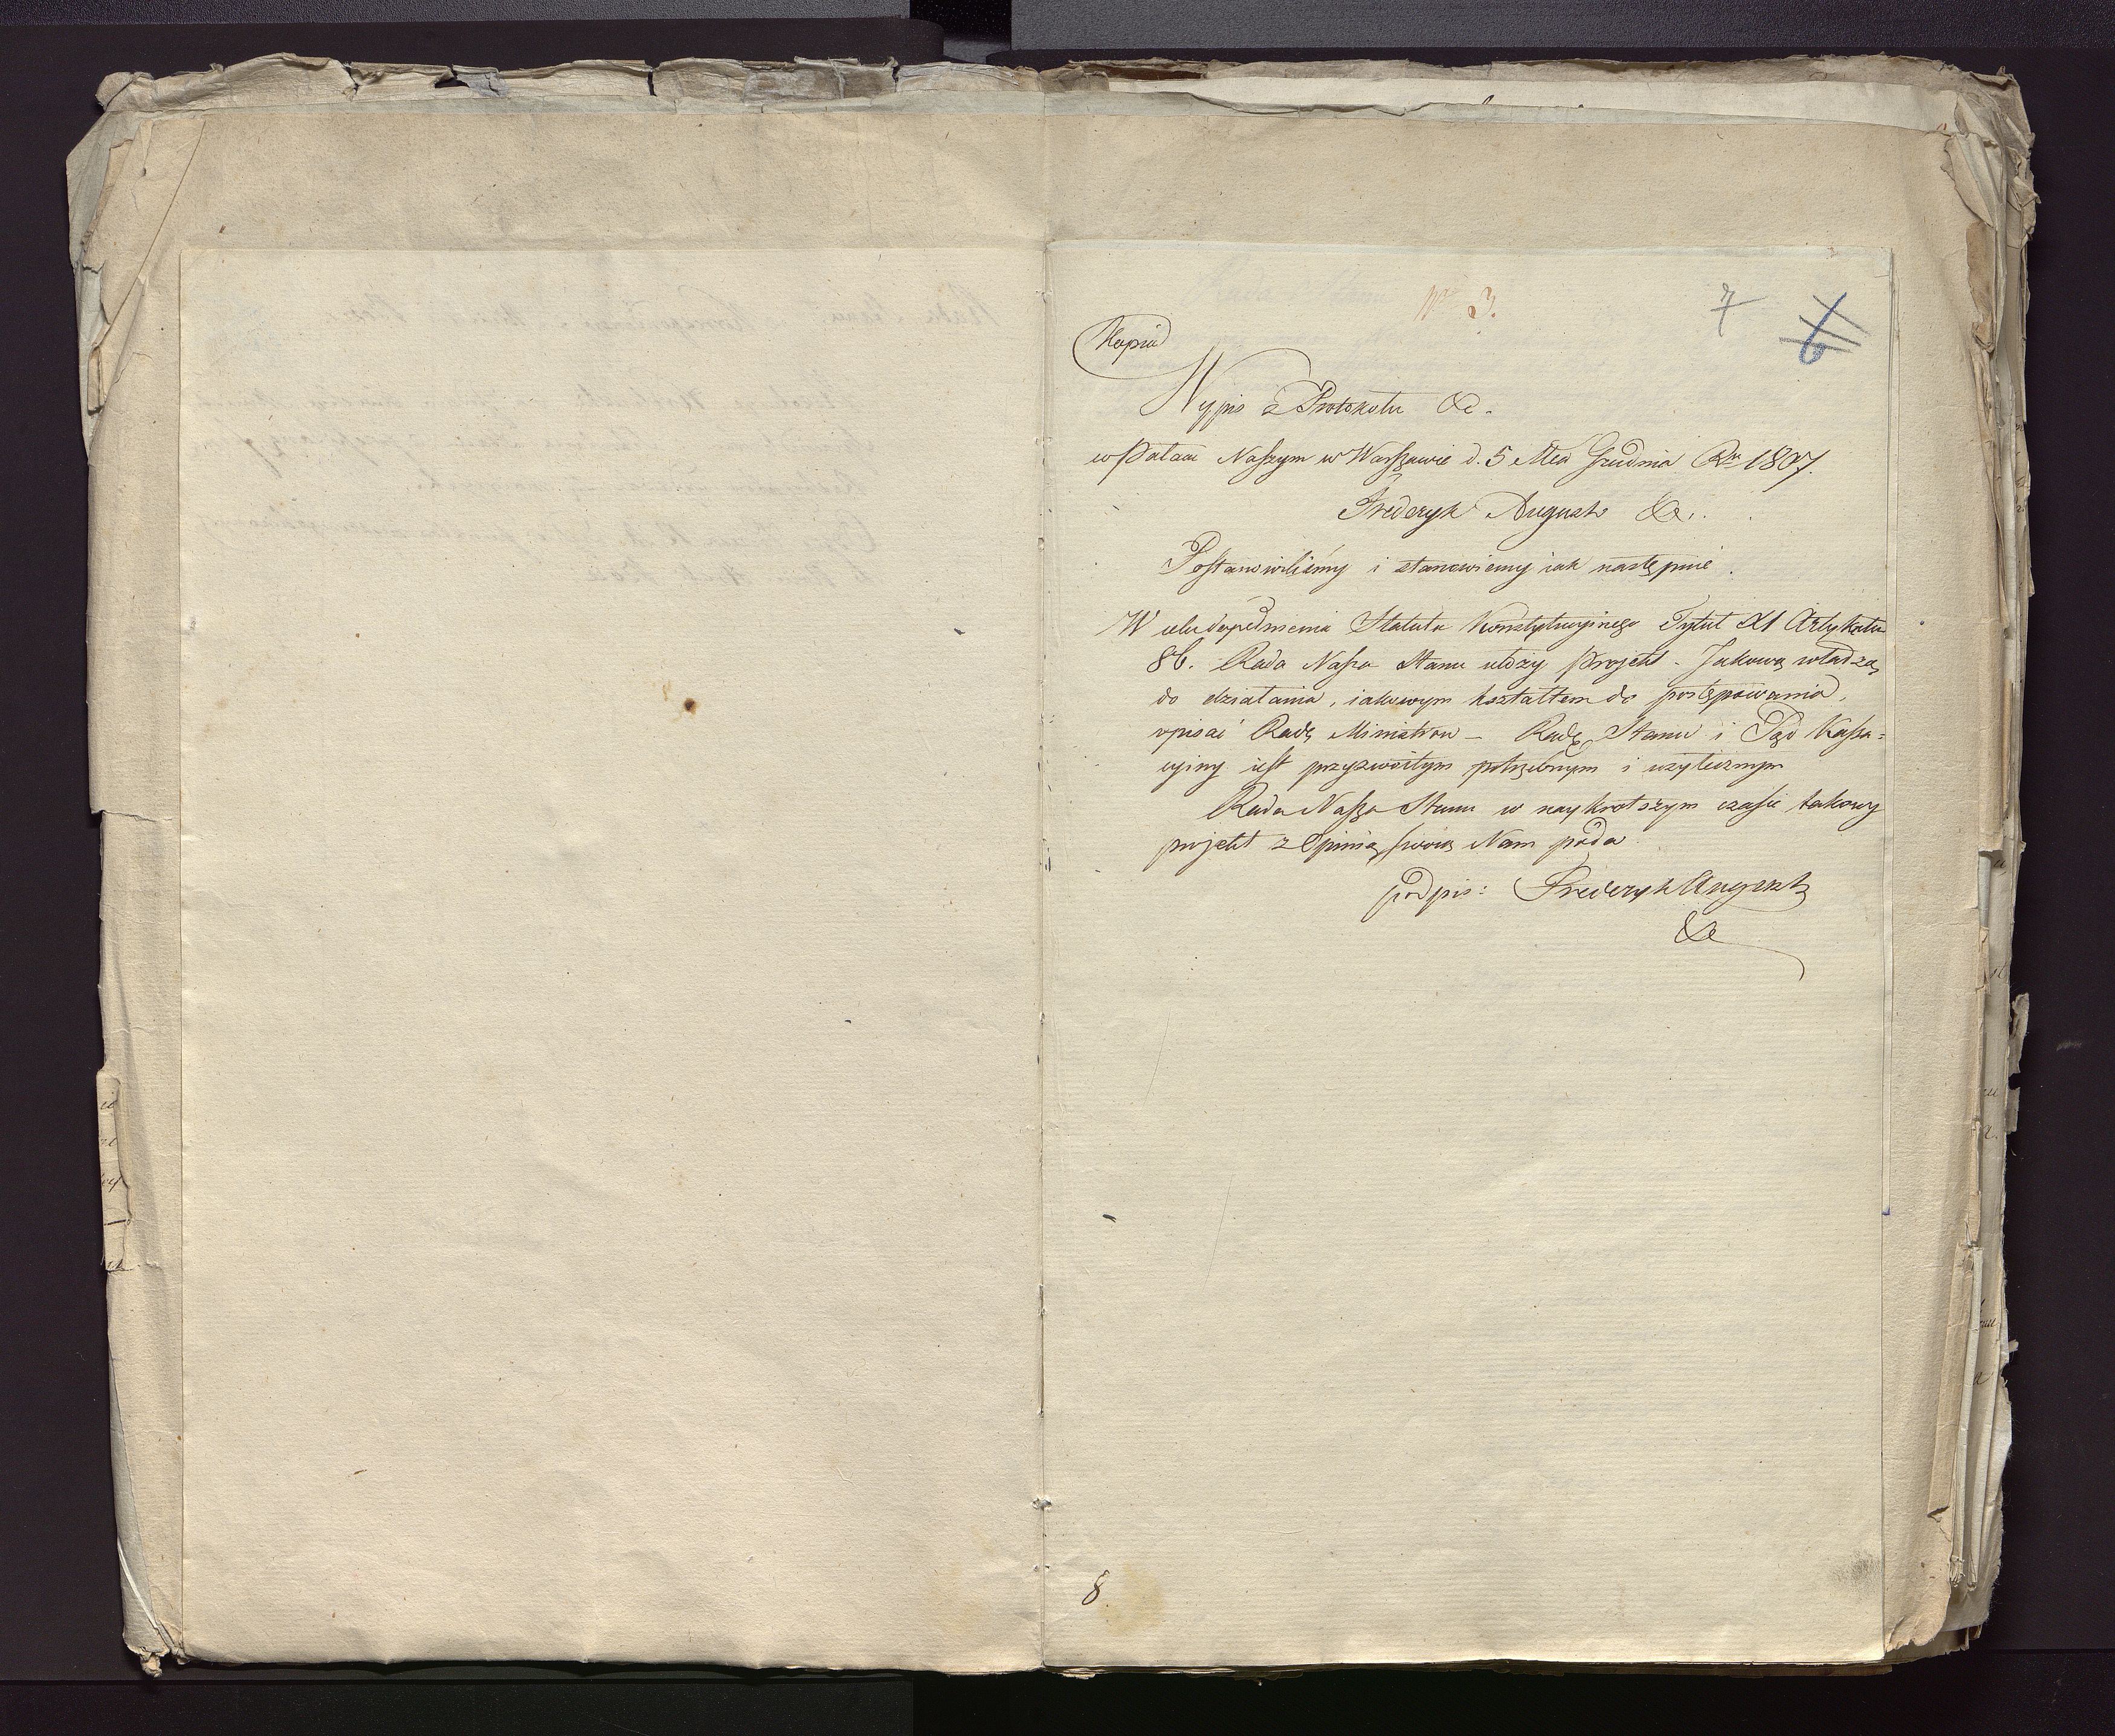 Nro 3.
7 6
Kopia
Wypis z Protokołu &c.
w Pałacu Naszym w Warszawie d. 5 Mca Grudnia Ru 1807.
Frederyk August &c.
Postanowiliśmy i stanowiemy iak następuie.
W celu dopełnienia Statutu Konstytucyinego Tytuł XI Artykułu
86. Rada Nasza Stanu ułoży projekt. Jakową władzą
do działania, iakowym kształtem do postępowania,
opisać Radę Ministrow – Radę Stanu i Sąd Kassa=
cyiny iest przyzwoitym potrzebnym i użytecznym
Rada Nasza Stanu w naykrotszym czasie takowy
projekt z Opinią swoią Nam poda.
podpis: Frederyk August
&c
8.